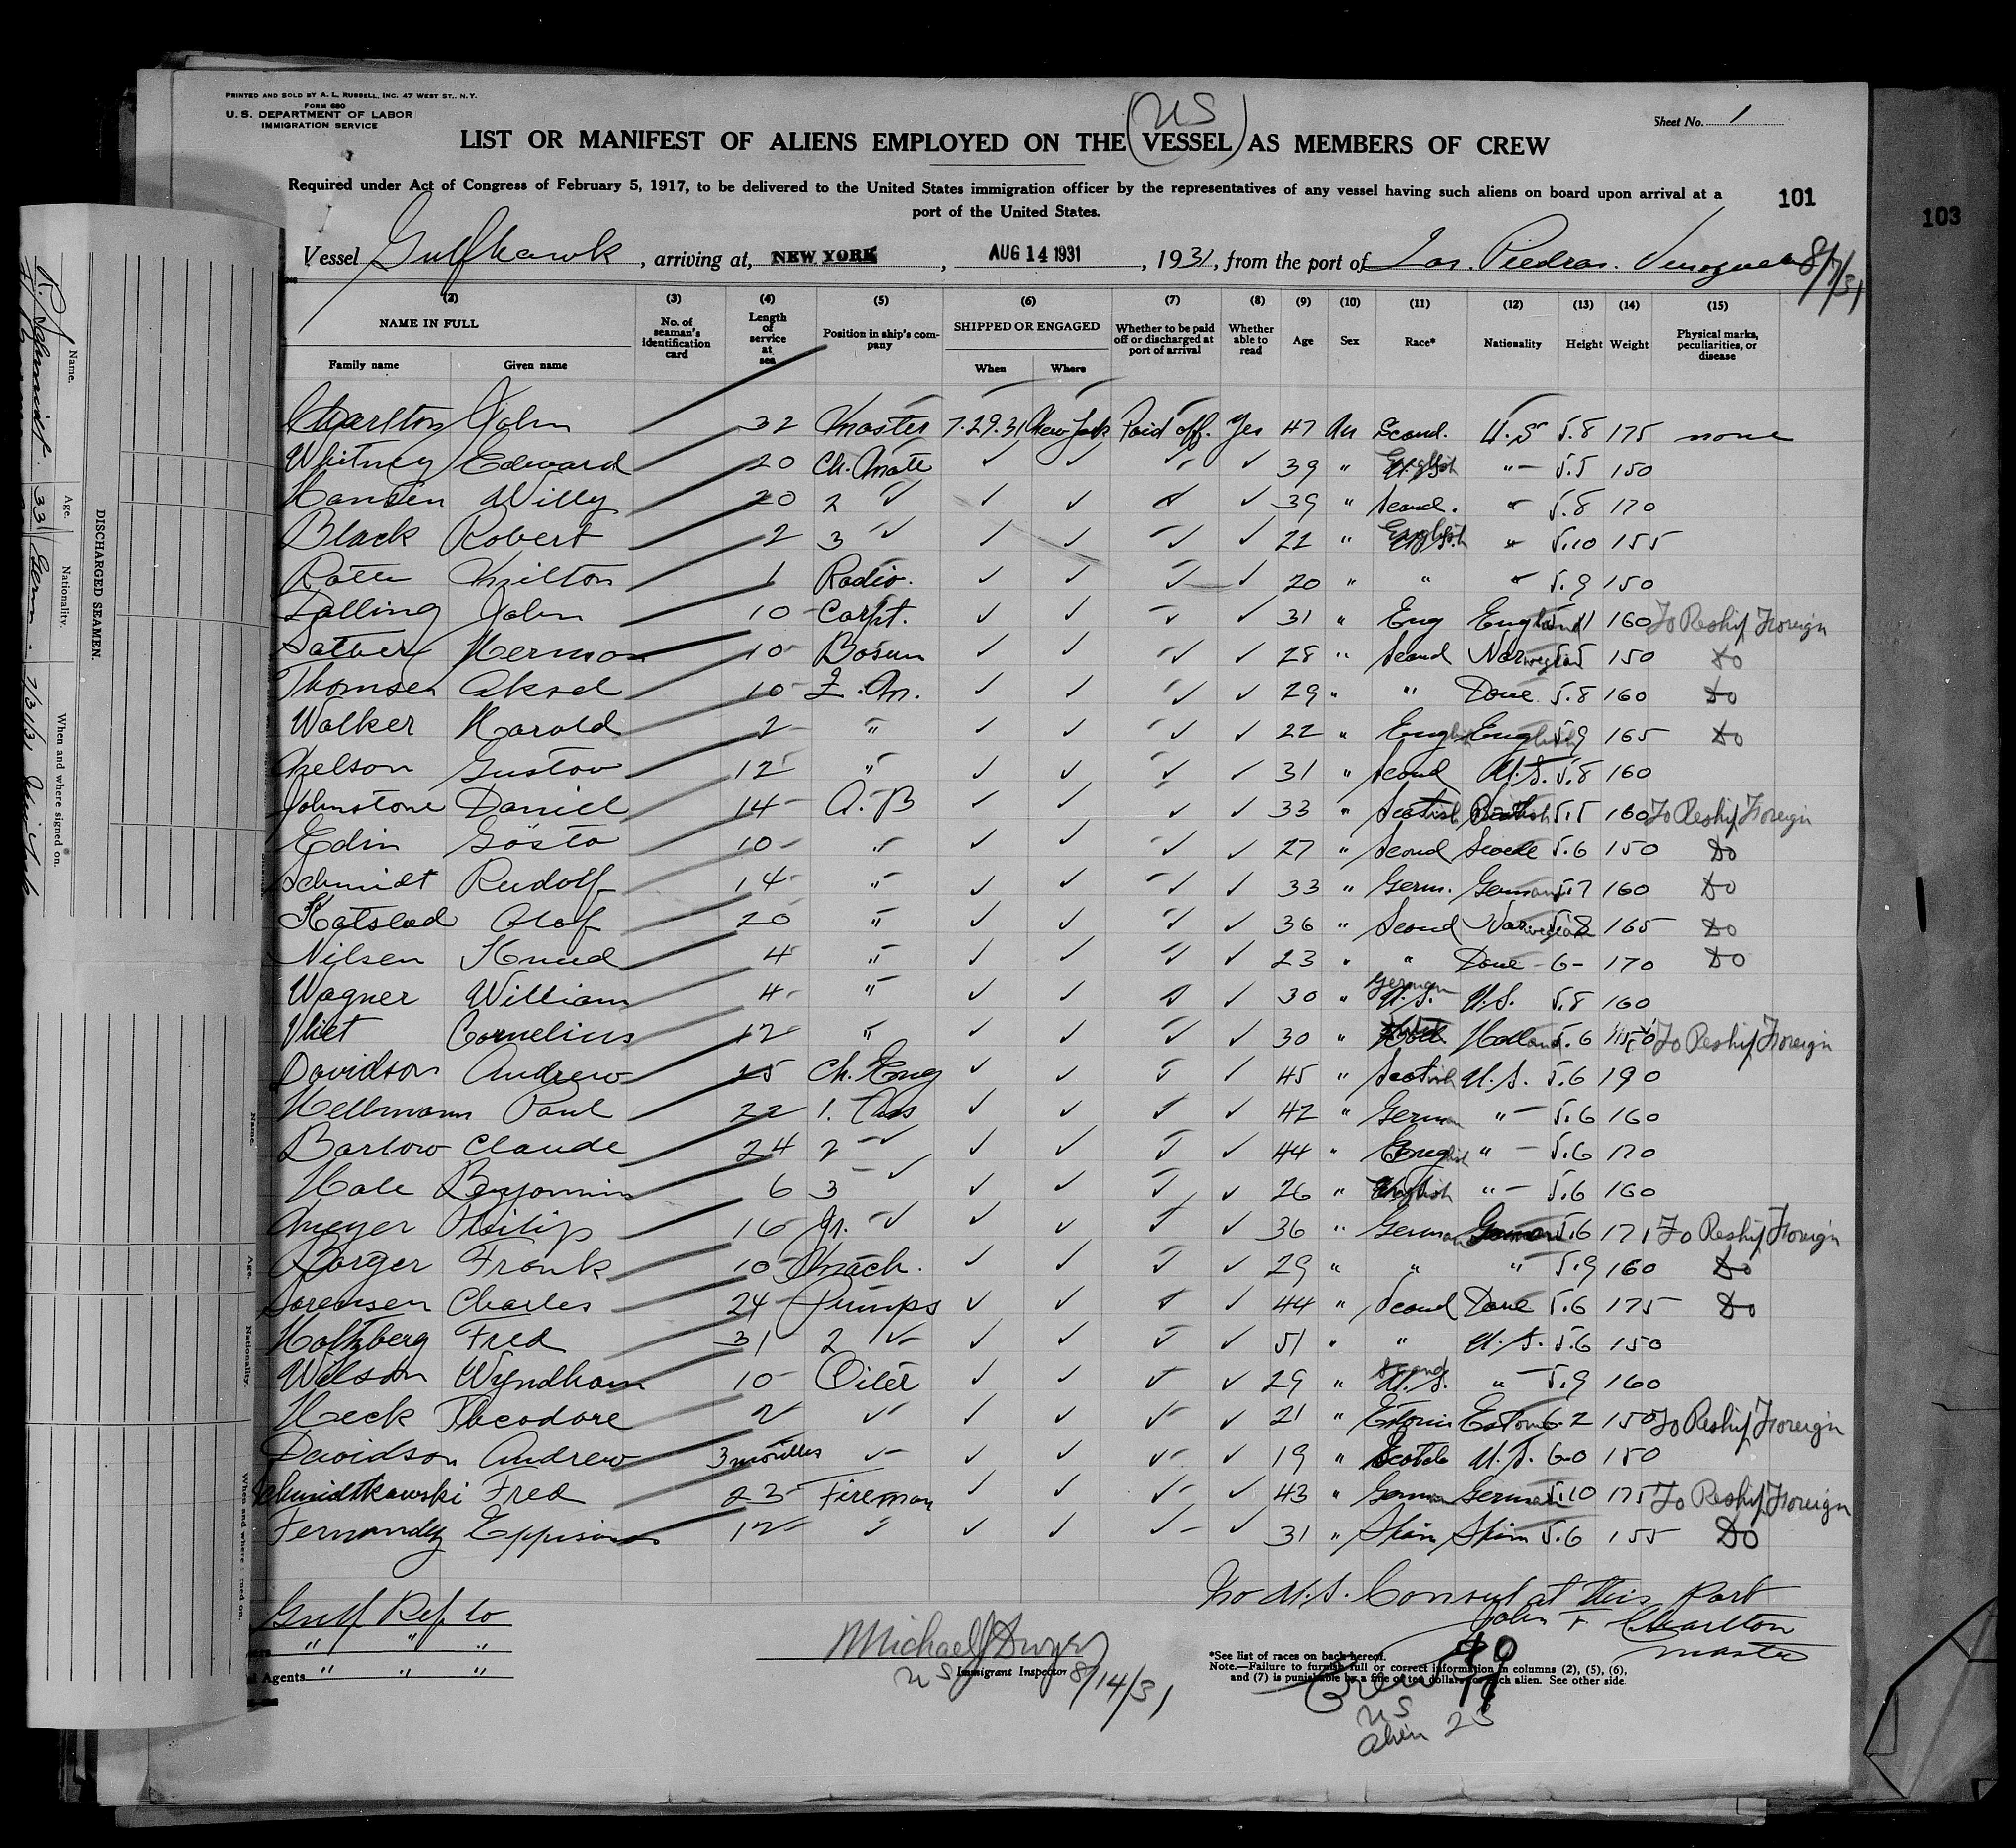 PRINTED AND SOLD BY A. L. RUSSELL, INC. 47 WEST ST., N.Y.
FORM 680
U. S. DEPARTMENT OF LABOR
IMMIGRATION SERVICE
Sheet No. 1
US
LIST OR MANIFEST OF ALIENS EMPLOYED ON THE VESSEL AS MEMBERS OF CREW
Required under Act of Congress of February 5, 1917, to be delivered to the United States immigration officer by the representatives of any vessel having such aliens on board upon arrival at a
port of the United States.
101
103
Vessel Gulfhawk, arriving at, NEW YORK, AUG 14 1931, 1931, from the port of Las Piedras. Venezuela 8/7/31
(2) (3) (4) (5) (6) (7) (8) (9) (10) (11) (12) (13) (14) (15)
NAME IN FULL No. of seaman's identification card Length of service at sea Position in ship's company SHIPPED OR ENGAGED Whether to be paid off or discharged at port of arrival Whether able to read Age Sex Race* Nationality Height Weight Physical marks, peculiarities, or disease
Family name Given name When Where
Charlton John 32 Master 7.29.31 New York Paid off. Yes 47 M Scand. U.S 5.8 175 none
Whitney Edward 20 Ch. Mate ✓ ✓ ✓ ✓ 39 " English " 5.5 150
Hansen Willy 20 2 ✓ ✓ ✓ ✓ ✓ 39 " Scand. " 5.8 170
Black Robert 2 3 ✓ ✓ ✓ ✓ ✓ 22 " English " 5.10 155
Milton 1 Radio. ✓ ✓ ✓ ✓ 20 " " " 5.9 150
Dalling John 10 Carpt. ✓ ✓ ✓ ✓ 31 " Eng England 5.11 160 To Reship Foreign
Sather Herman 10 Bosun ✓ ✓ ✓ ✓ 28 " Scand Norwegian 5.5 150 Do
Thomsen Aksel 10 Q.M. ✓ ✓ ✓ ✓ 29 " " Dane 5.8 160 Do
Walker Harold 2 " ✓ ✓ ✓ ✓ 22 " English English 5.9 165 Do
Nelson Gustav 12 " ✓ ✓ ✓ ✓ 31 " Scand U.S. 5.8 160
Johnstone Daniel 14 A.B ✓ ✓ ✓ ✓ 33 " Scottish British 5.5 160 To Reship Foreign
Edin Gösta 10 " ✓ ✓ ✓ ✓ 27 " Scand Swede 5.6 150 Do
Schmidt Rudolf 14 " ✓ ✓ ✓ ✓ 33 " Germ. German 5.7 160 Do
Olaf 20 " ✓ ✓ ✓ ✓ 36 " Scand Norwegian 5.8 165 Do
Nilsen Knud 4 " ✓ ✓ ✓ ✓ 23 " " Dane 6 170 Do
Wagner William 4 " ✓ ✓ ✓ ✓ 30 " German U.S. U.S. 5.8 160
Vliet Cornelius 12 " ✓ ✓ ✓ ✓ 30 " Holland 5.6 150 To Reship Foreign
Davidson Andrew 25 Ch. Eng ✓ ✓ ✓ ✓ 45 " Scotish U.S. 5.6 190
Hellmann Paul 22 1. Ass ✓ ✓ ✓ ✓ 42 " German " 5.6 160
Barlow Claude 24 2 ✓ ✓ ✓ ✓ ✓ 44 " English " 5.6 170
Hale Benjamin 6 3 ✓ ✓ ✓ ✓ ✓ 26 " English " 5.6 160
Meyer Philip 16 Jr. ✓ ✓ ✓ ✓ ✓ 36 " German German 5.6 171 To Reship Foreign
Borger Frank 10 Mach. ✓ ✓ ✓ ✓ 29 " " " 5.9 160 Do
Sorensen Charles 24 Pumps ✓ ✓ ✓ ✓ 44 " Scand Dane 5.6 175 Do
Holtzberg Fred 31 2 ✓ ✓ ✓ ✓ ✓ 51 " " U.S. 5.6 150
Wilson Wyndham 10 Oiler ✓ ✓ ✓ ✓ 29 " Scand U.S. " 5.9 160
Heck Theodore 2 ✓ ✓ ✓ ✓ ✓ 21 " Estonia Estonia 6.2 150 To Reship Foreign
Davidson Andrew 3 months ✓ ✓ ✓ ✓ ✓ 19 " U.S. 6-0 150
Schmidtkowski Fred 23 Fireman ✓ ✓ ✓ ✓ 43 " German German 5.10 175 To Reship Foreign
Fernandez 12 ✓ ✓ ✓ ✓ ✓ 31 " Spain Spain 5.6 155 Do
No U.S. Consul at this Port
John F Charlton
Master
Gulf Ref Co
" " "
Agents " " "
Michael J Dwyer
US Immigrant Inspector 8/14/31
*See list of races on back hereof.
Note.—Failure to furnish full or correct information in columns (2), (5), (6),
and (7) is punishable by a fine of ten dollars for each alien. See other side.
Crew
US
Alien 23
DISCHARGED SEAMEN.
Name. Age. Nationality. When and where signed on.
R. Schmidt. 33 Germ. 7/31/31 New York
Name. Age. Nationality. When and where signed on.